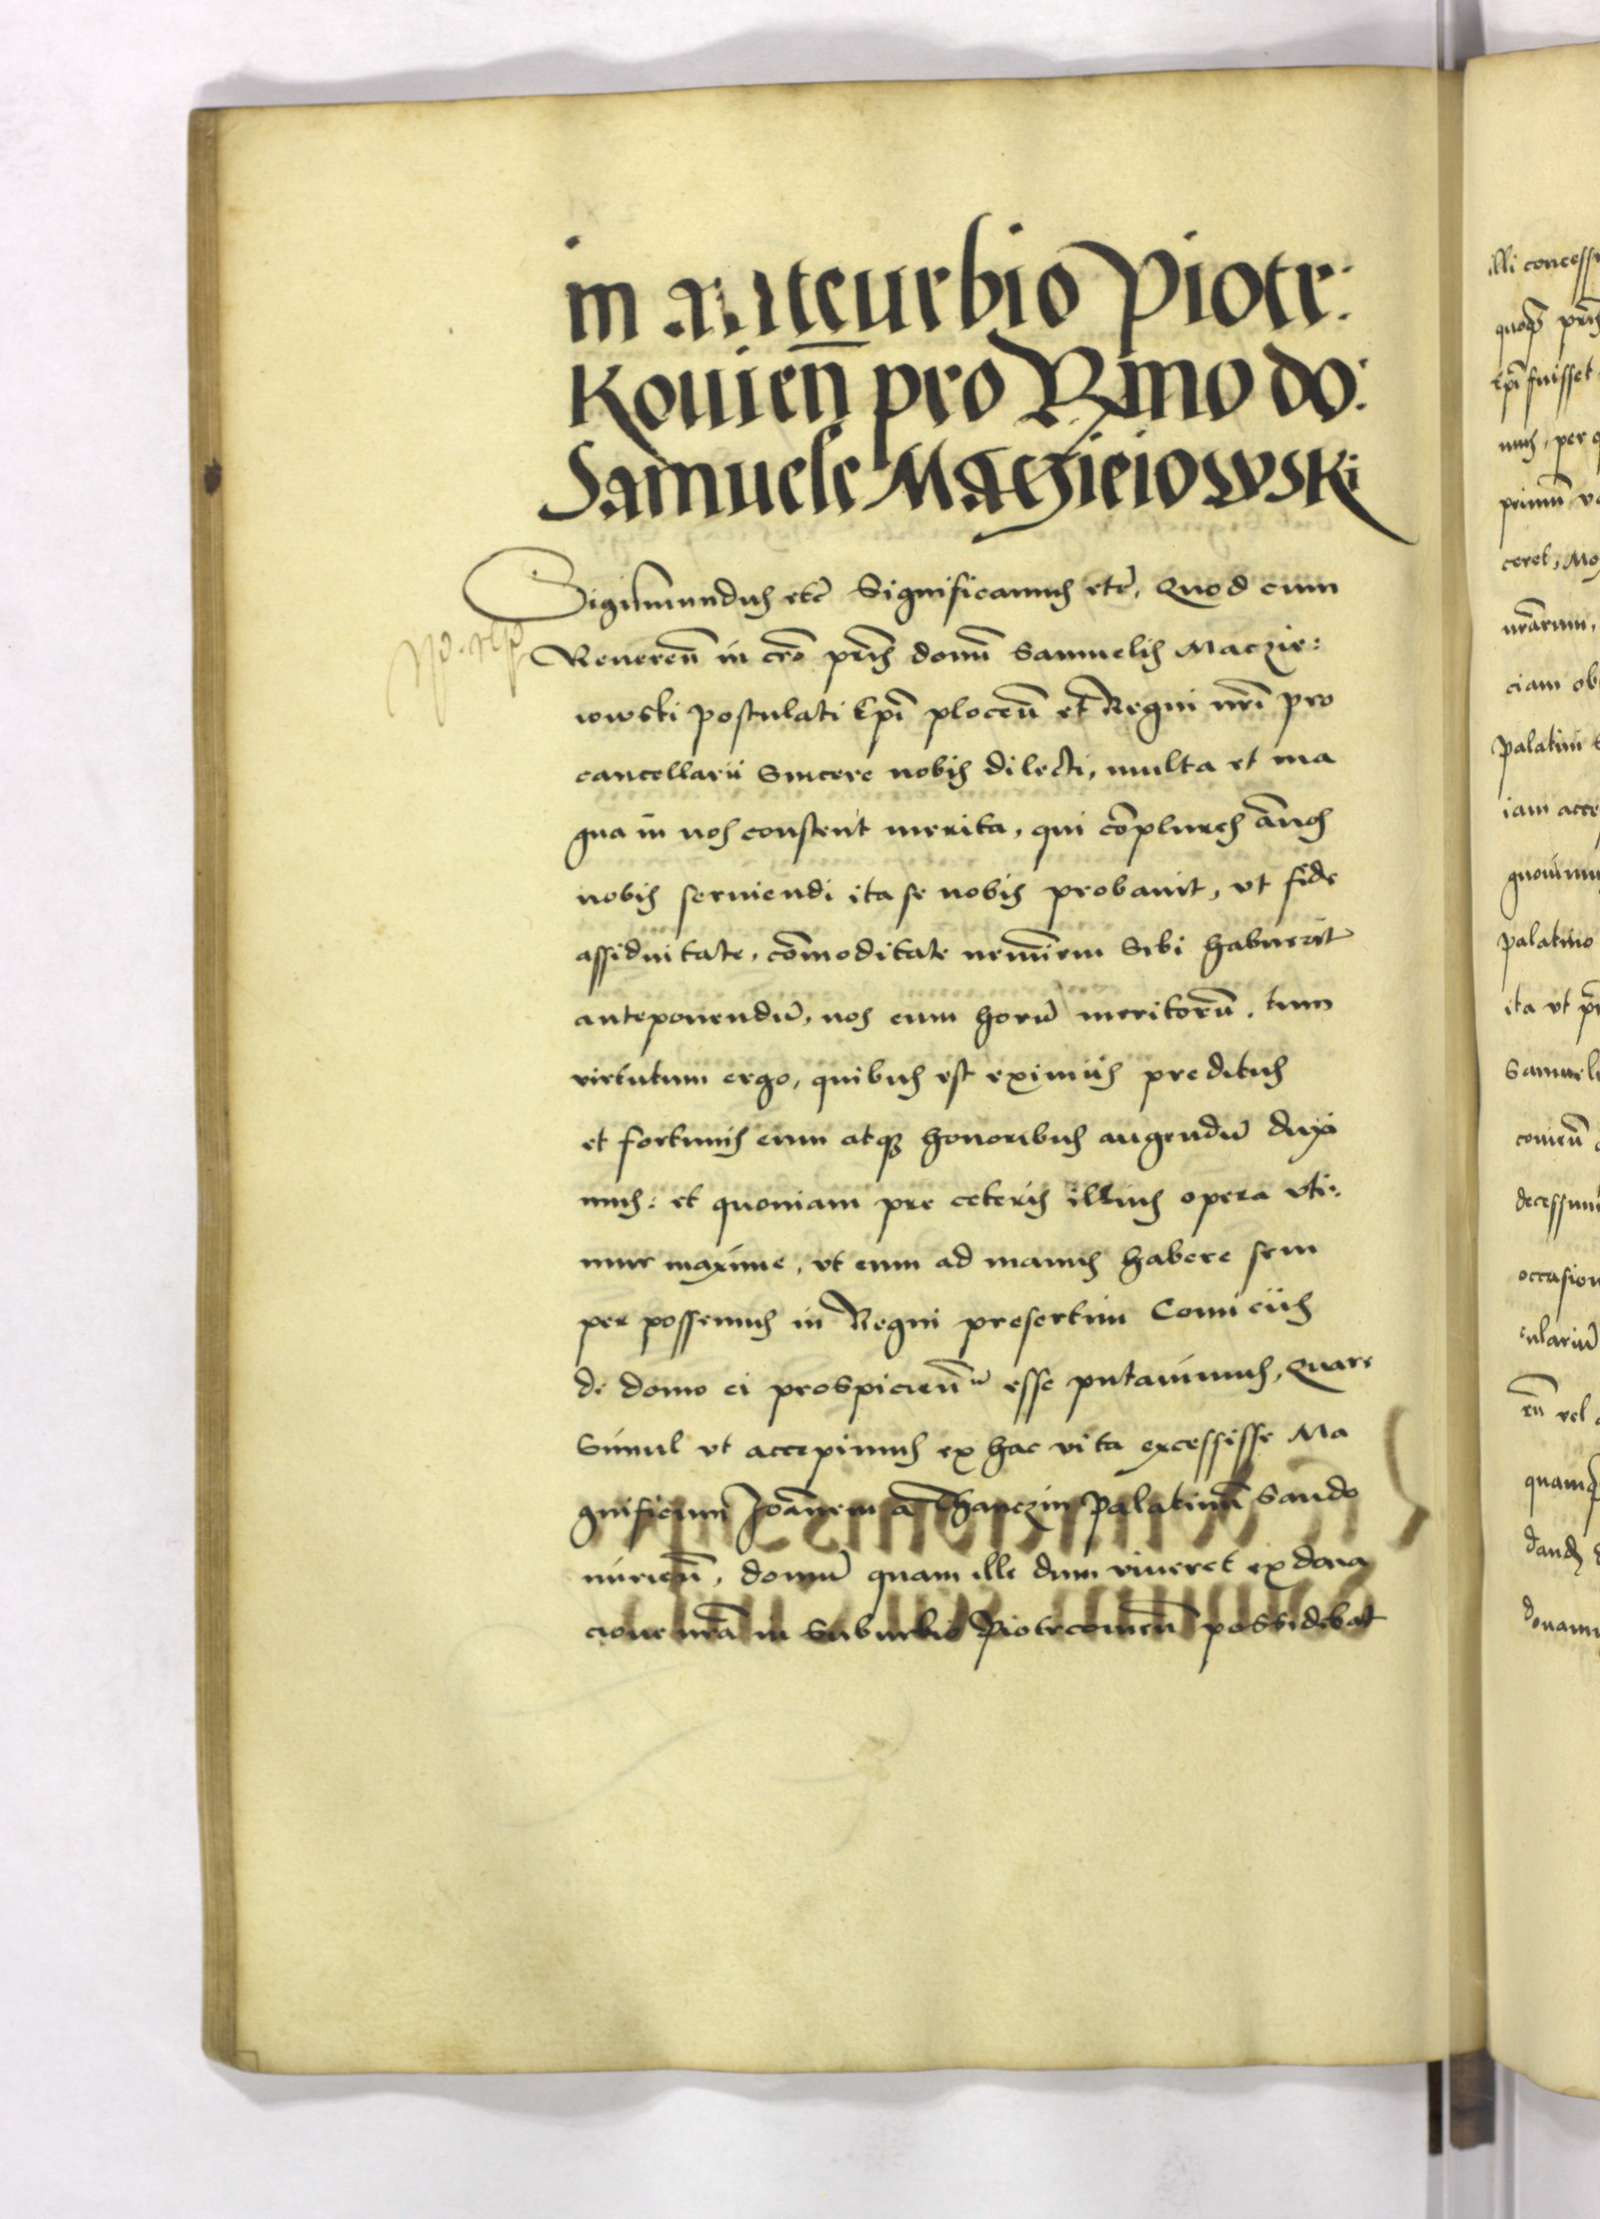 in anteurbio Piotr:
Kouien̄ pro R̄mo do:
Samuele Maczieiowski
Sigismundus etc̄ Significamus etc̄, Quod cum
Reueren̄ in cr̄o pr̄is domī Samuelis Maczie:
iowski postulati Ep̄i plocen̄ et Regni nr̄i pro
cancellarii Sincere nobis dilecti, multa et ma
gna in nos constent merita, qui cōplures ānos
nobis seruiendi ita se nobis probauit, vt fide
assiduitate, cōmoditate neminem Sibi habuerit
anteponendū, nos cum horū meritorū, tum
virtutum ergo, quibus est eximiis preditus
et fortunis eum atq3 honoribus augendū duxi
mus: et quoniam pre ceteris illius opera vti:
mur maxime, vt eum ad manus habere sem
per possemus in Regni presertim Comiciis
de domo ei prospicien̄ esse putauimus, Quare
Simul vt accepimus ex hac vita excessisse Ma
gnificum Joānem a Thanczin Palatinū Sando
mirien̄, domū quam ille dum viueret ex dona
cione nrā in Suburbio Piotrcouien̄ possidebat
illi concess
quoq3 pr̄is
Ep̄i fuisset
mus, per
primū
ceret, Mo
nr̄arum,
ciam ob
palatini
iam acce
gnouimus
palatino
ita vt
Samueli
couien̄
decessum
occasion
cularium
en̄ vel
quamq3
dand
donamu